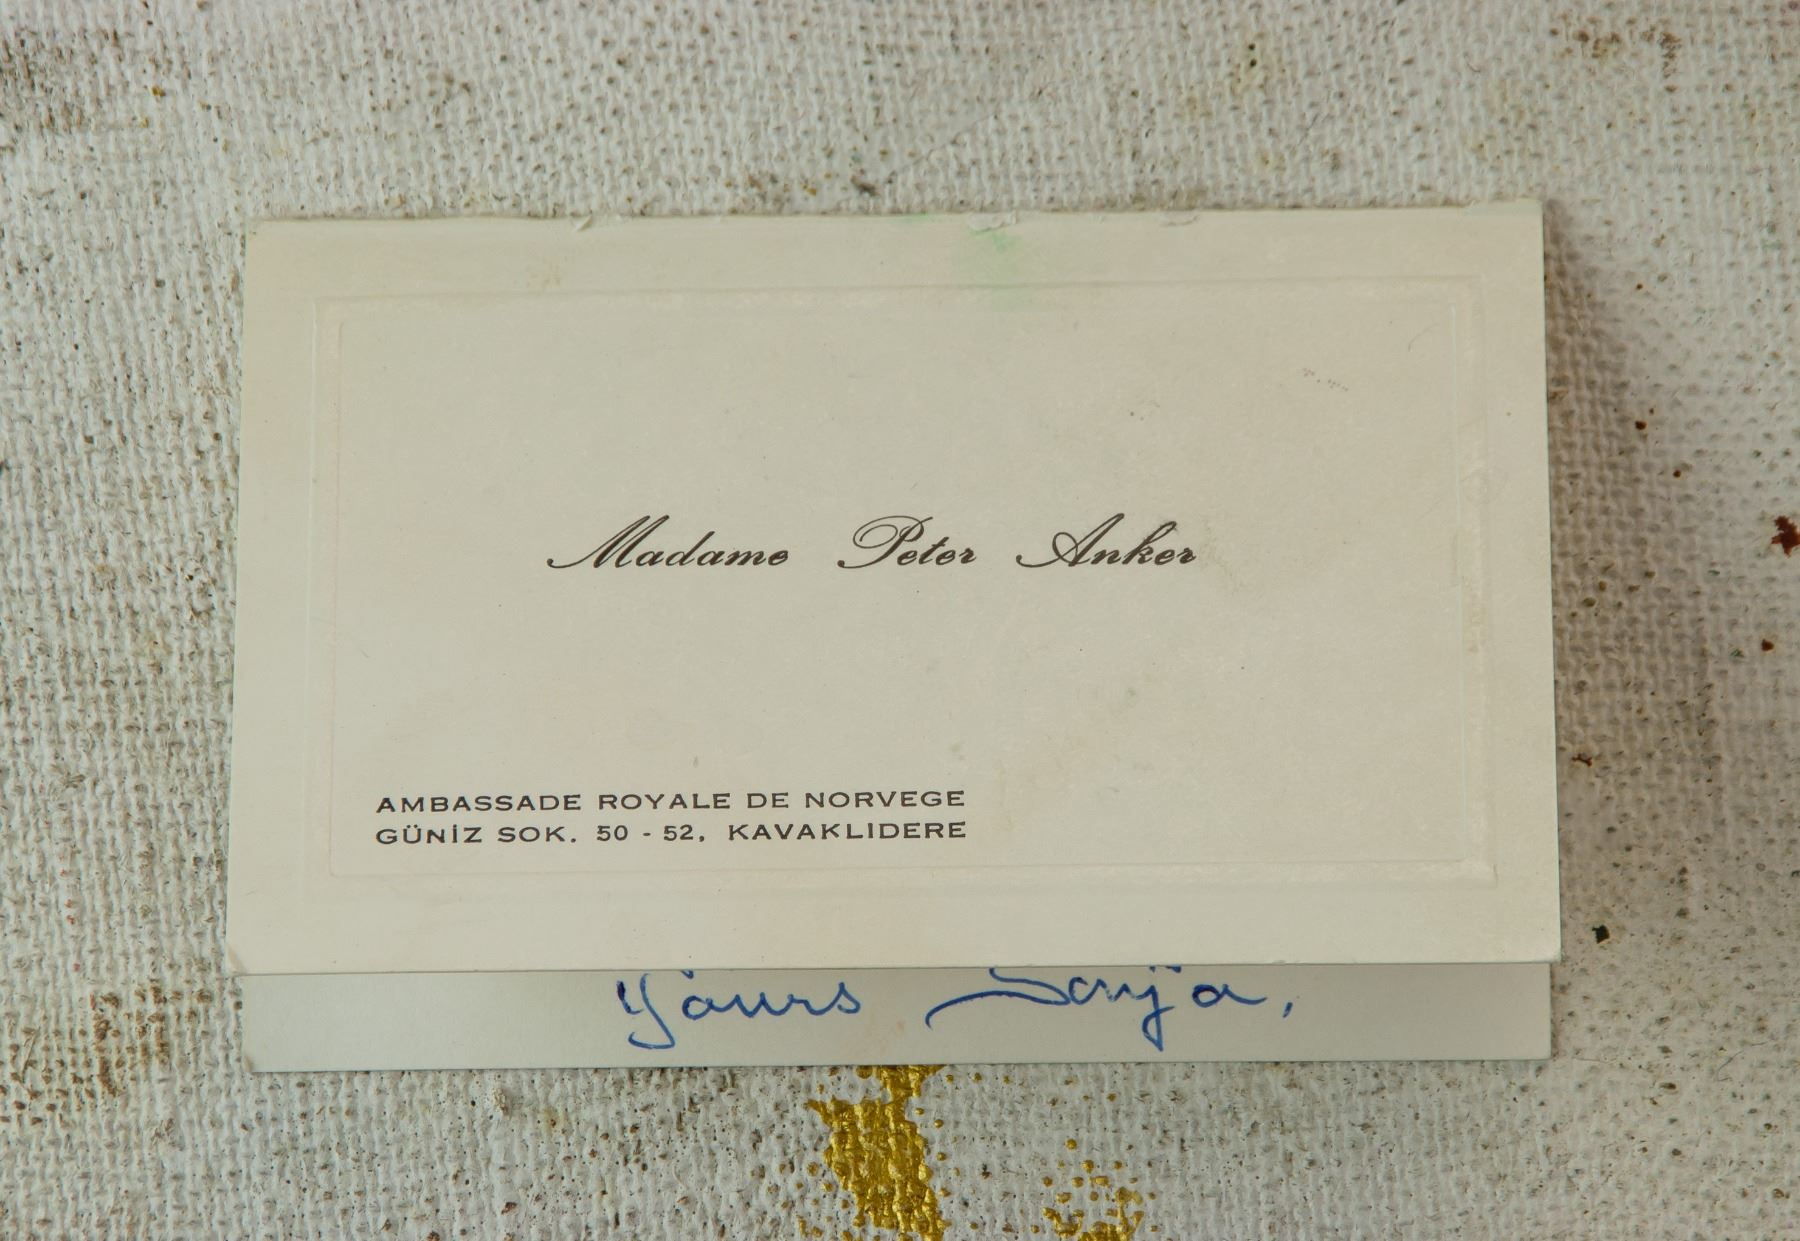 Madame Peter Anker
AMBASSADE ROYALE DE NORVEGE
GÜNİZ SOK. 50 - 52, KAVAKLIDERE
Yours